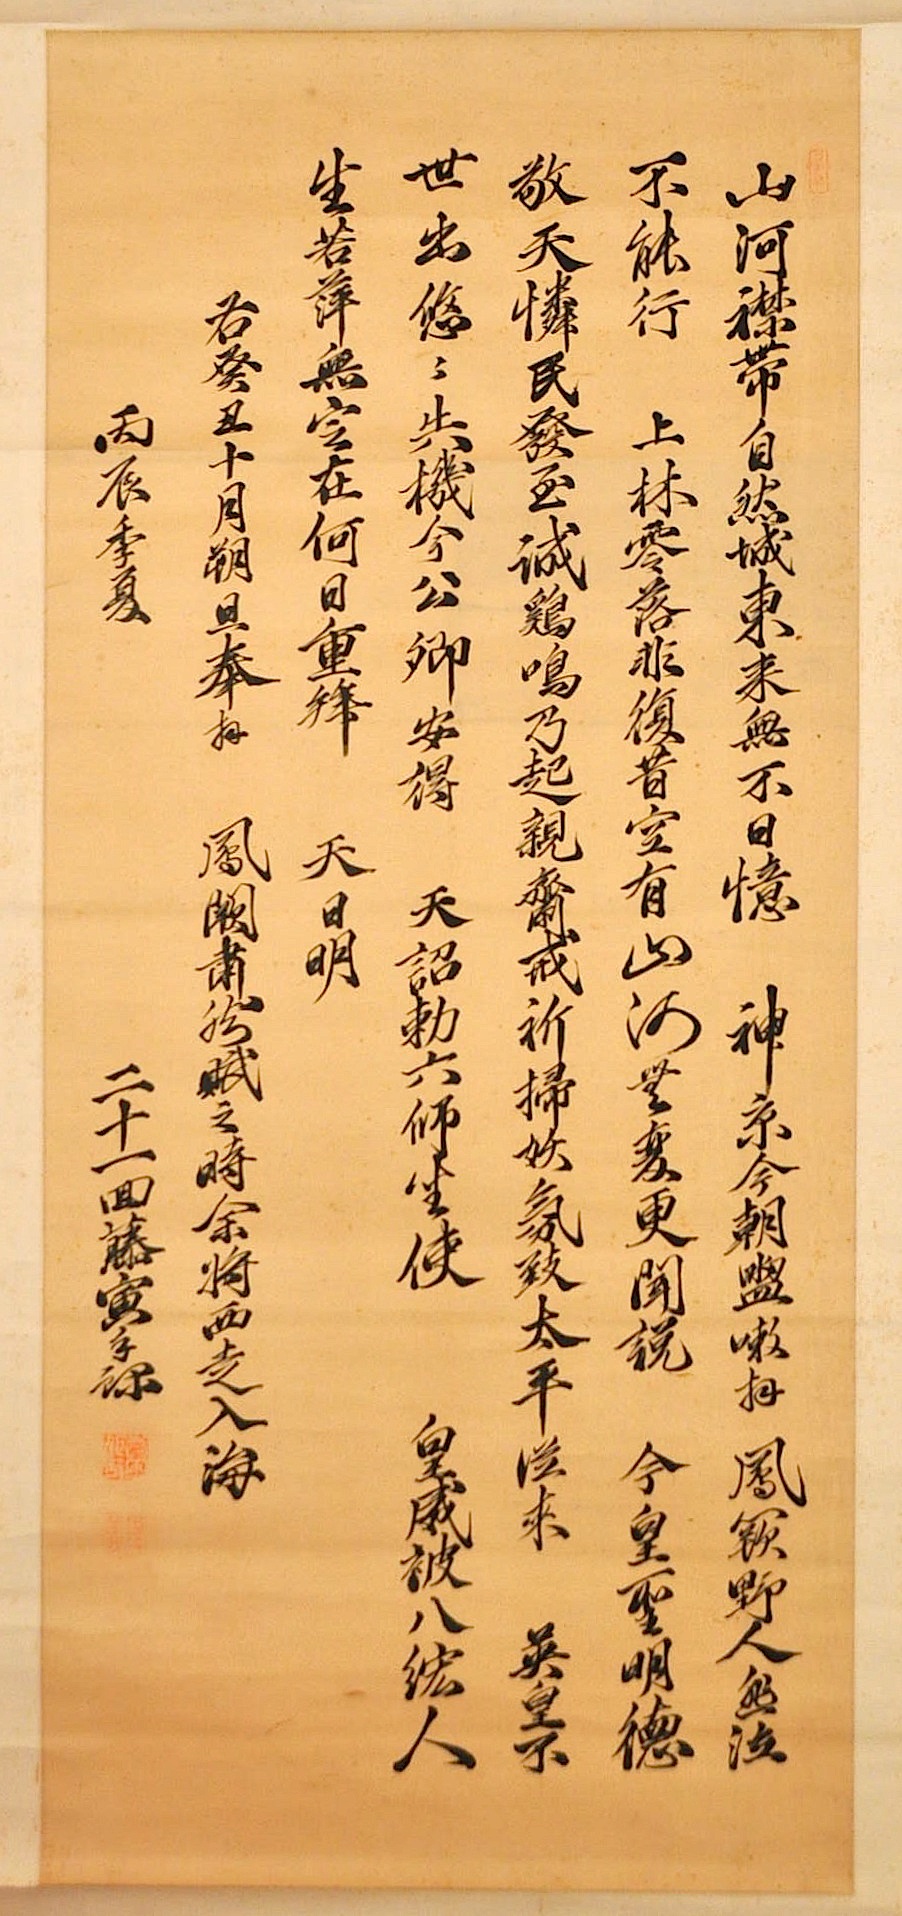 山河襟帶自然城東来無不日憶　神京今朝盥嗽拜　鳳闕野人悲泣
不能行　上林零落非復昔空有山河無変更聞説　今皇聖明徳
敬天憐民發至誠鶏鳴乃起親齋戒祈掃妖氛致太平従来　英皇不
世出悠〻失機今公卿安得　天詔勅六師坐使　皇威被八紘人
生若萍無定在何日重拜　天日明
右癸丑十月朔旦奉拜　鳳闕肅然賦之時余将西走入海
丙辰季夏　二十一回藤寅手録